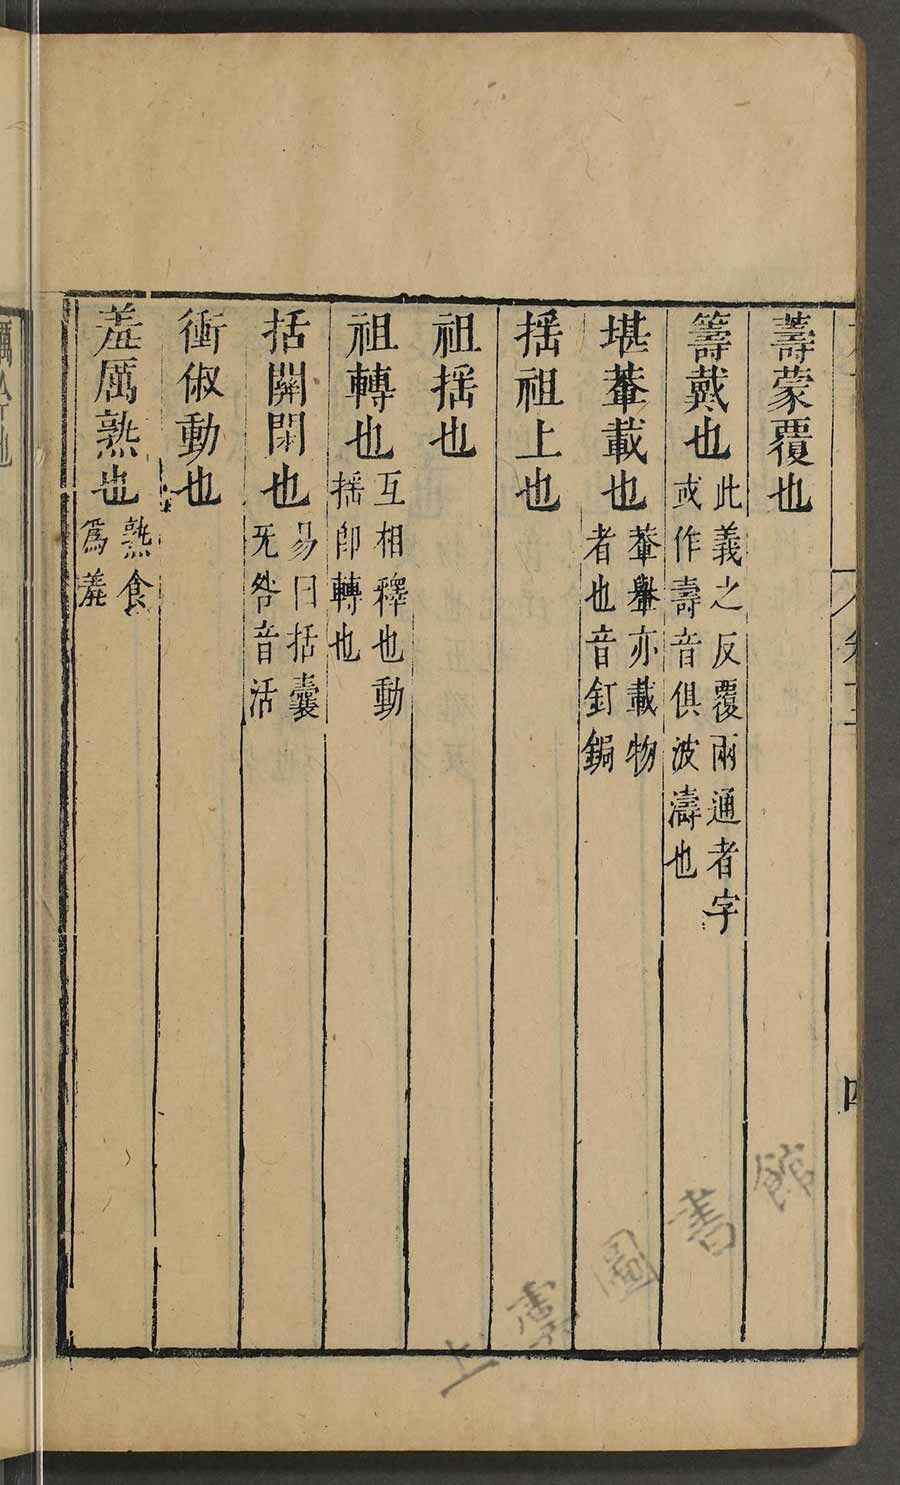 蘁蒙覆也
籌戴也此義之反覆兩通者字或作壽音俱波濤也
堪輂載也輂轝亦載物者也音釘鋦
揺祖上也
祖揺也
祖轉也互相釋也動揺即轉也
括關閉也易曰括囊无咎音活
衝俶動也
羞厲熟也熟食為羞
四
上虞圖書館